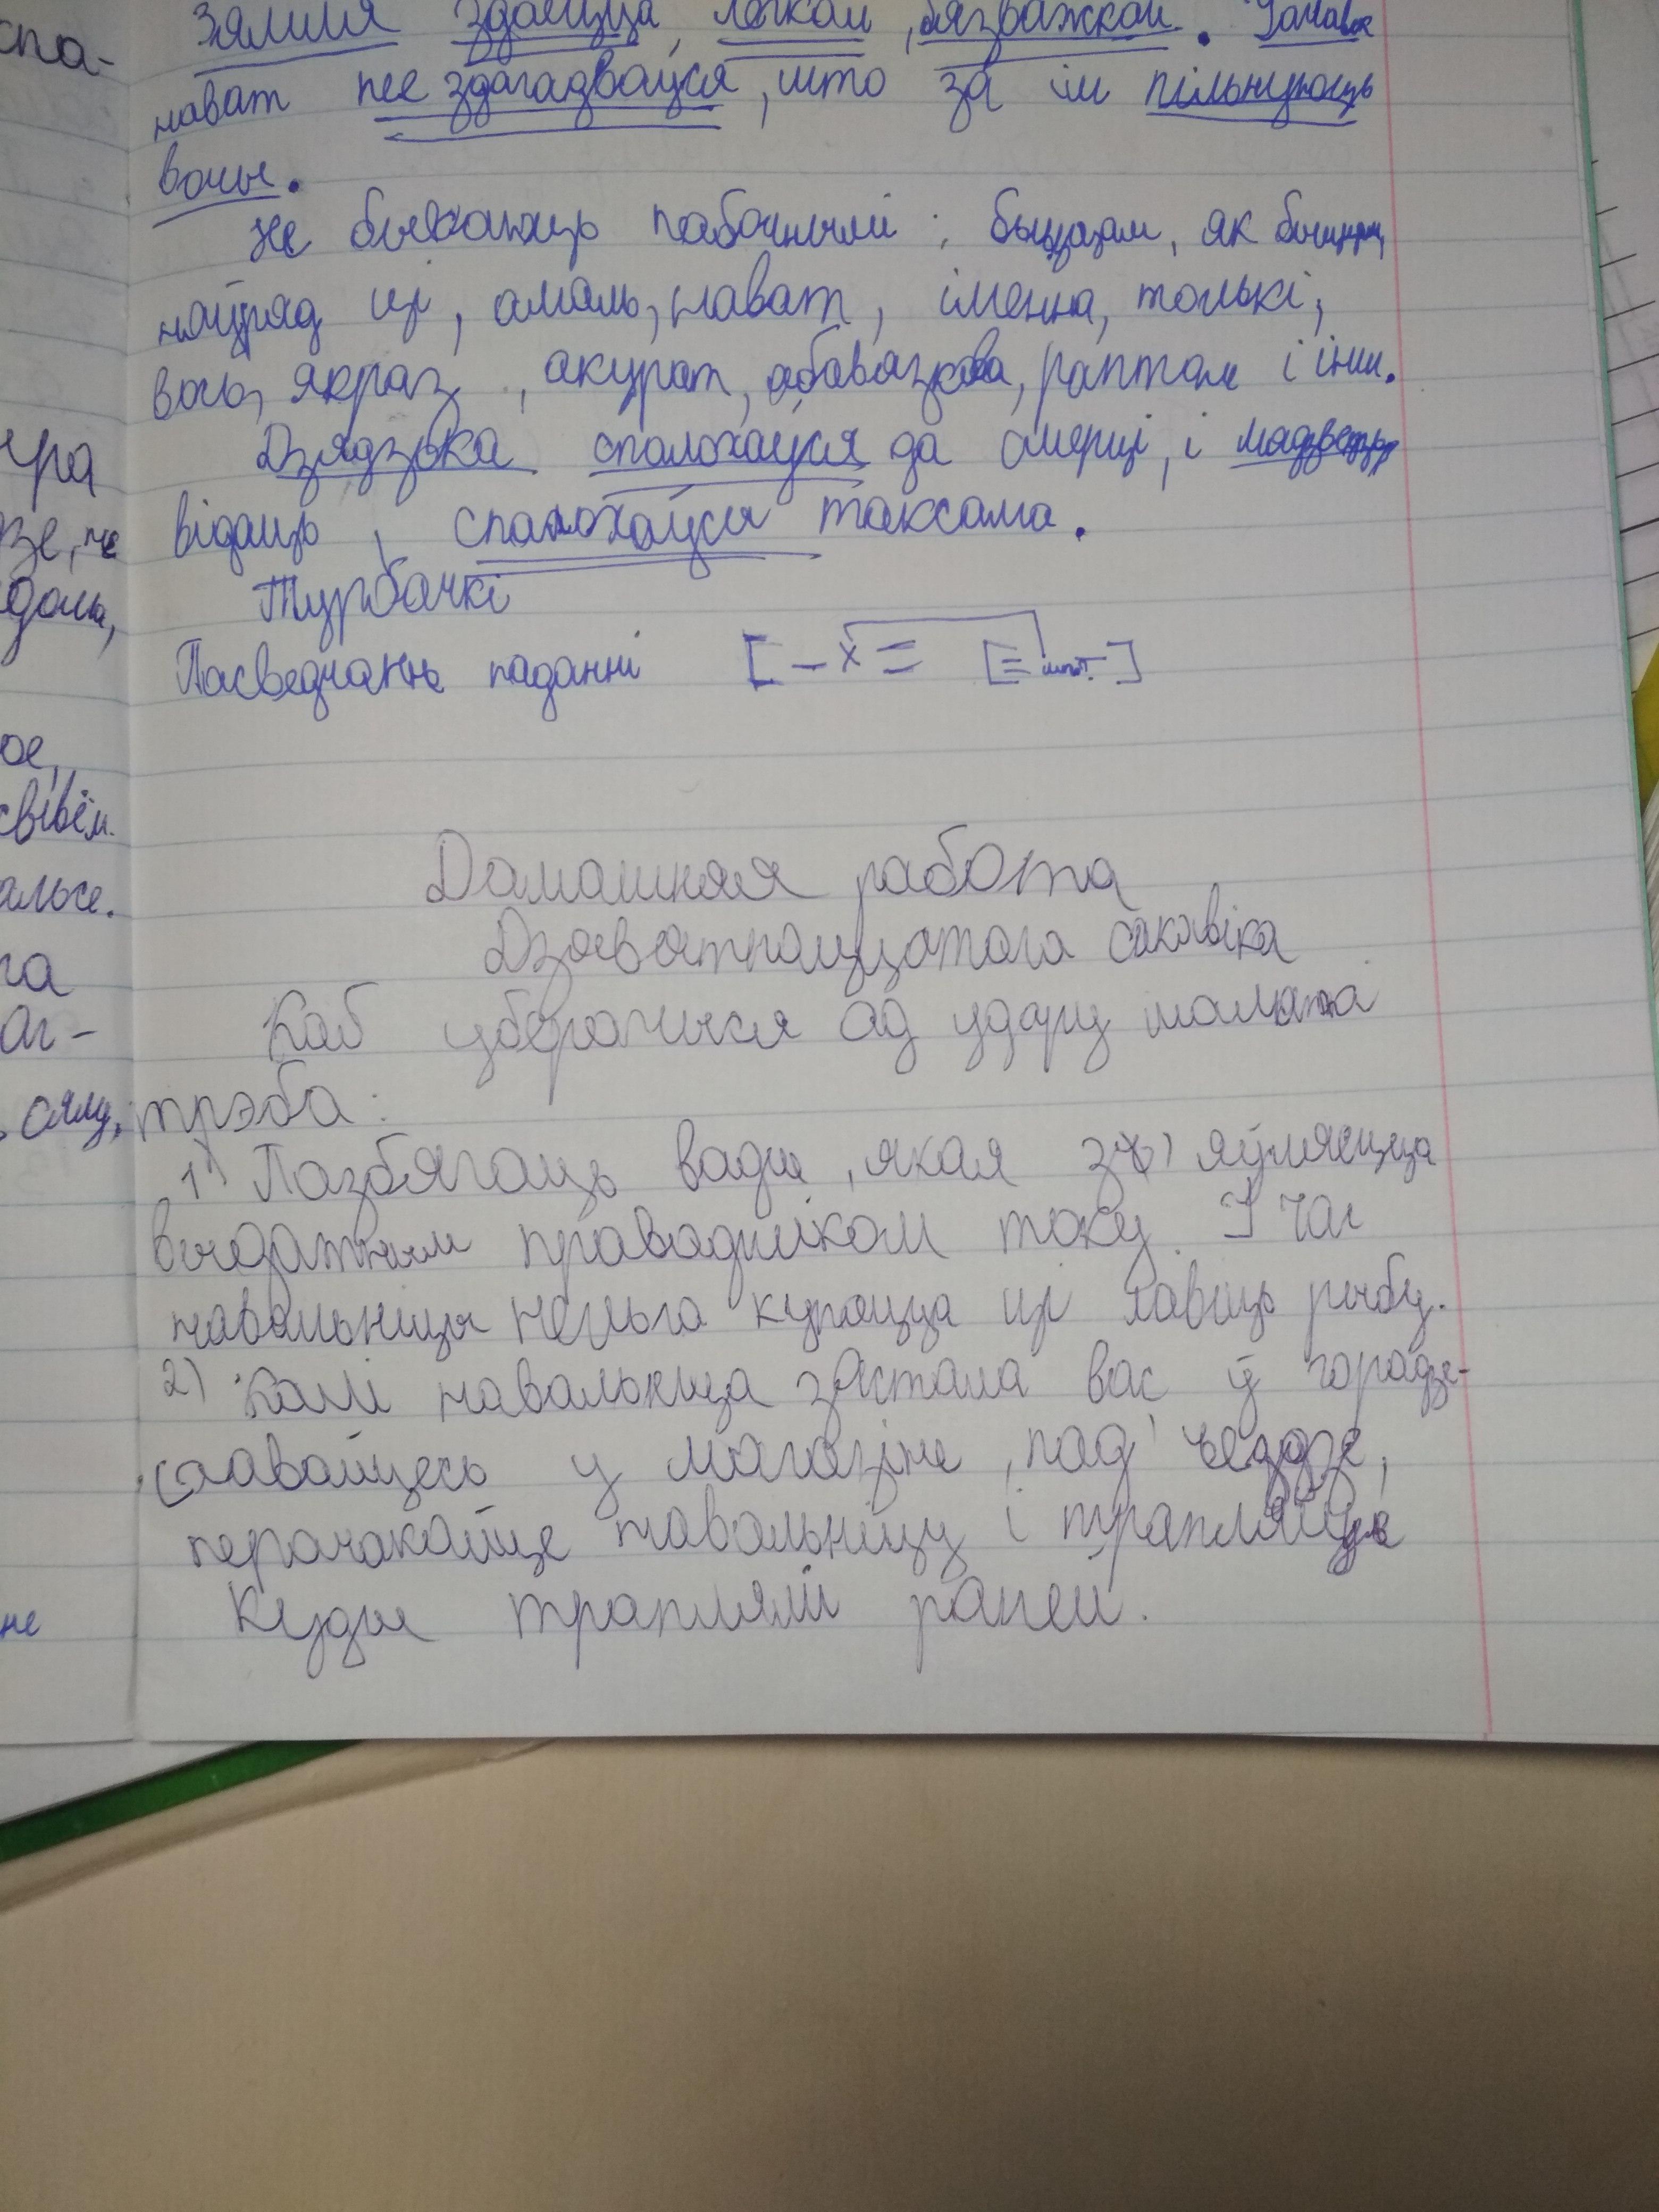 спа-
Зямля здаецца лёгкай, бязважкай. Чалавек
нават не здагадваўся, што за ім пільнуюць
вочы.
Не бываюць пабочнымі: быццам, як быццам,
наўрад ці, амаль, нават, іменна, толькі,
вось, якраз, акурат, абавязкова, раптам і інш.
Дзядзька спалохаўся да смерці, і мядзведзь,
відаць, спалохаўся таксама.
Турбачкі
Пасведчанне паданні [– х = [= шт. ]
ра
зе, не
дома,
ое,
альсе.
га
аг-
сялу,
не
Дамашняя работа
Дзеватнаццатага сакавіка
Каб уберагчыся ад удару маланкі
трэба:
1) Пазбягаць вады, якая з' яўляецца
выдатным праваднiком току. У час
навальніцы нельга купацца ці лавіць рыбу.
2) Калі навальніца застала вас ў горадзе-
схавайцесь у магазіне, пад'ездзе,
перачакайце навальніцу і трапляйце
куды траплялі раней.